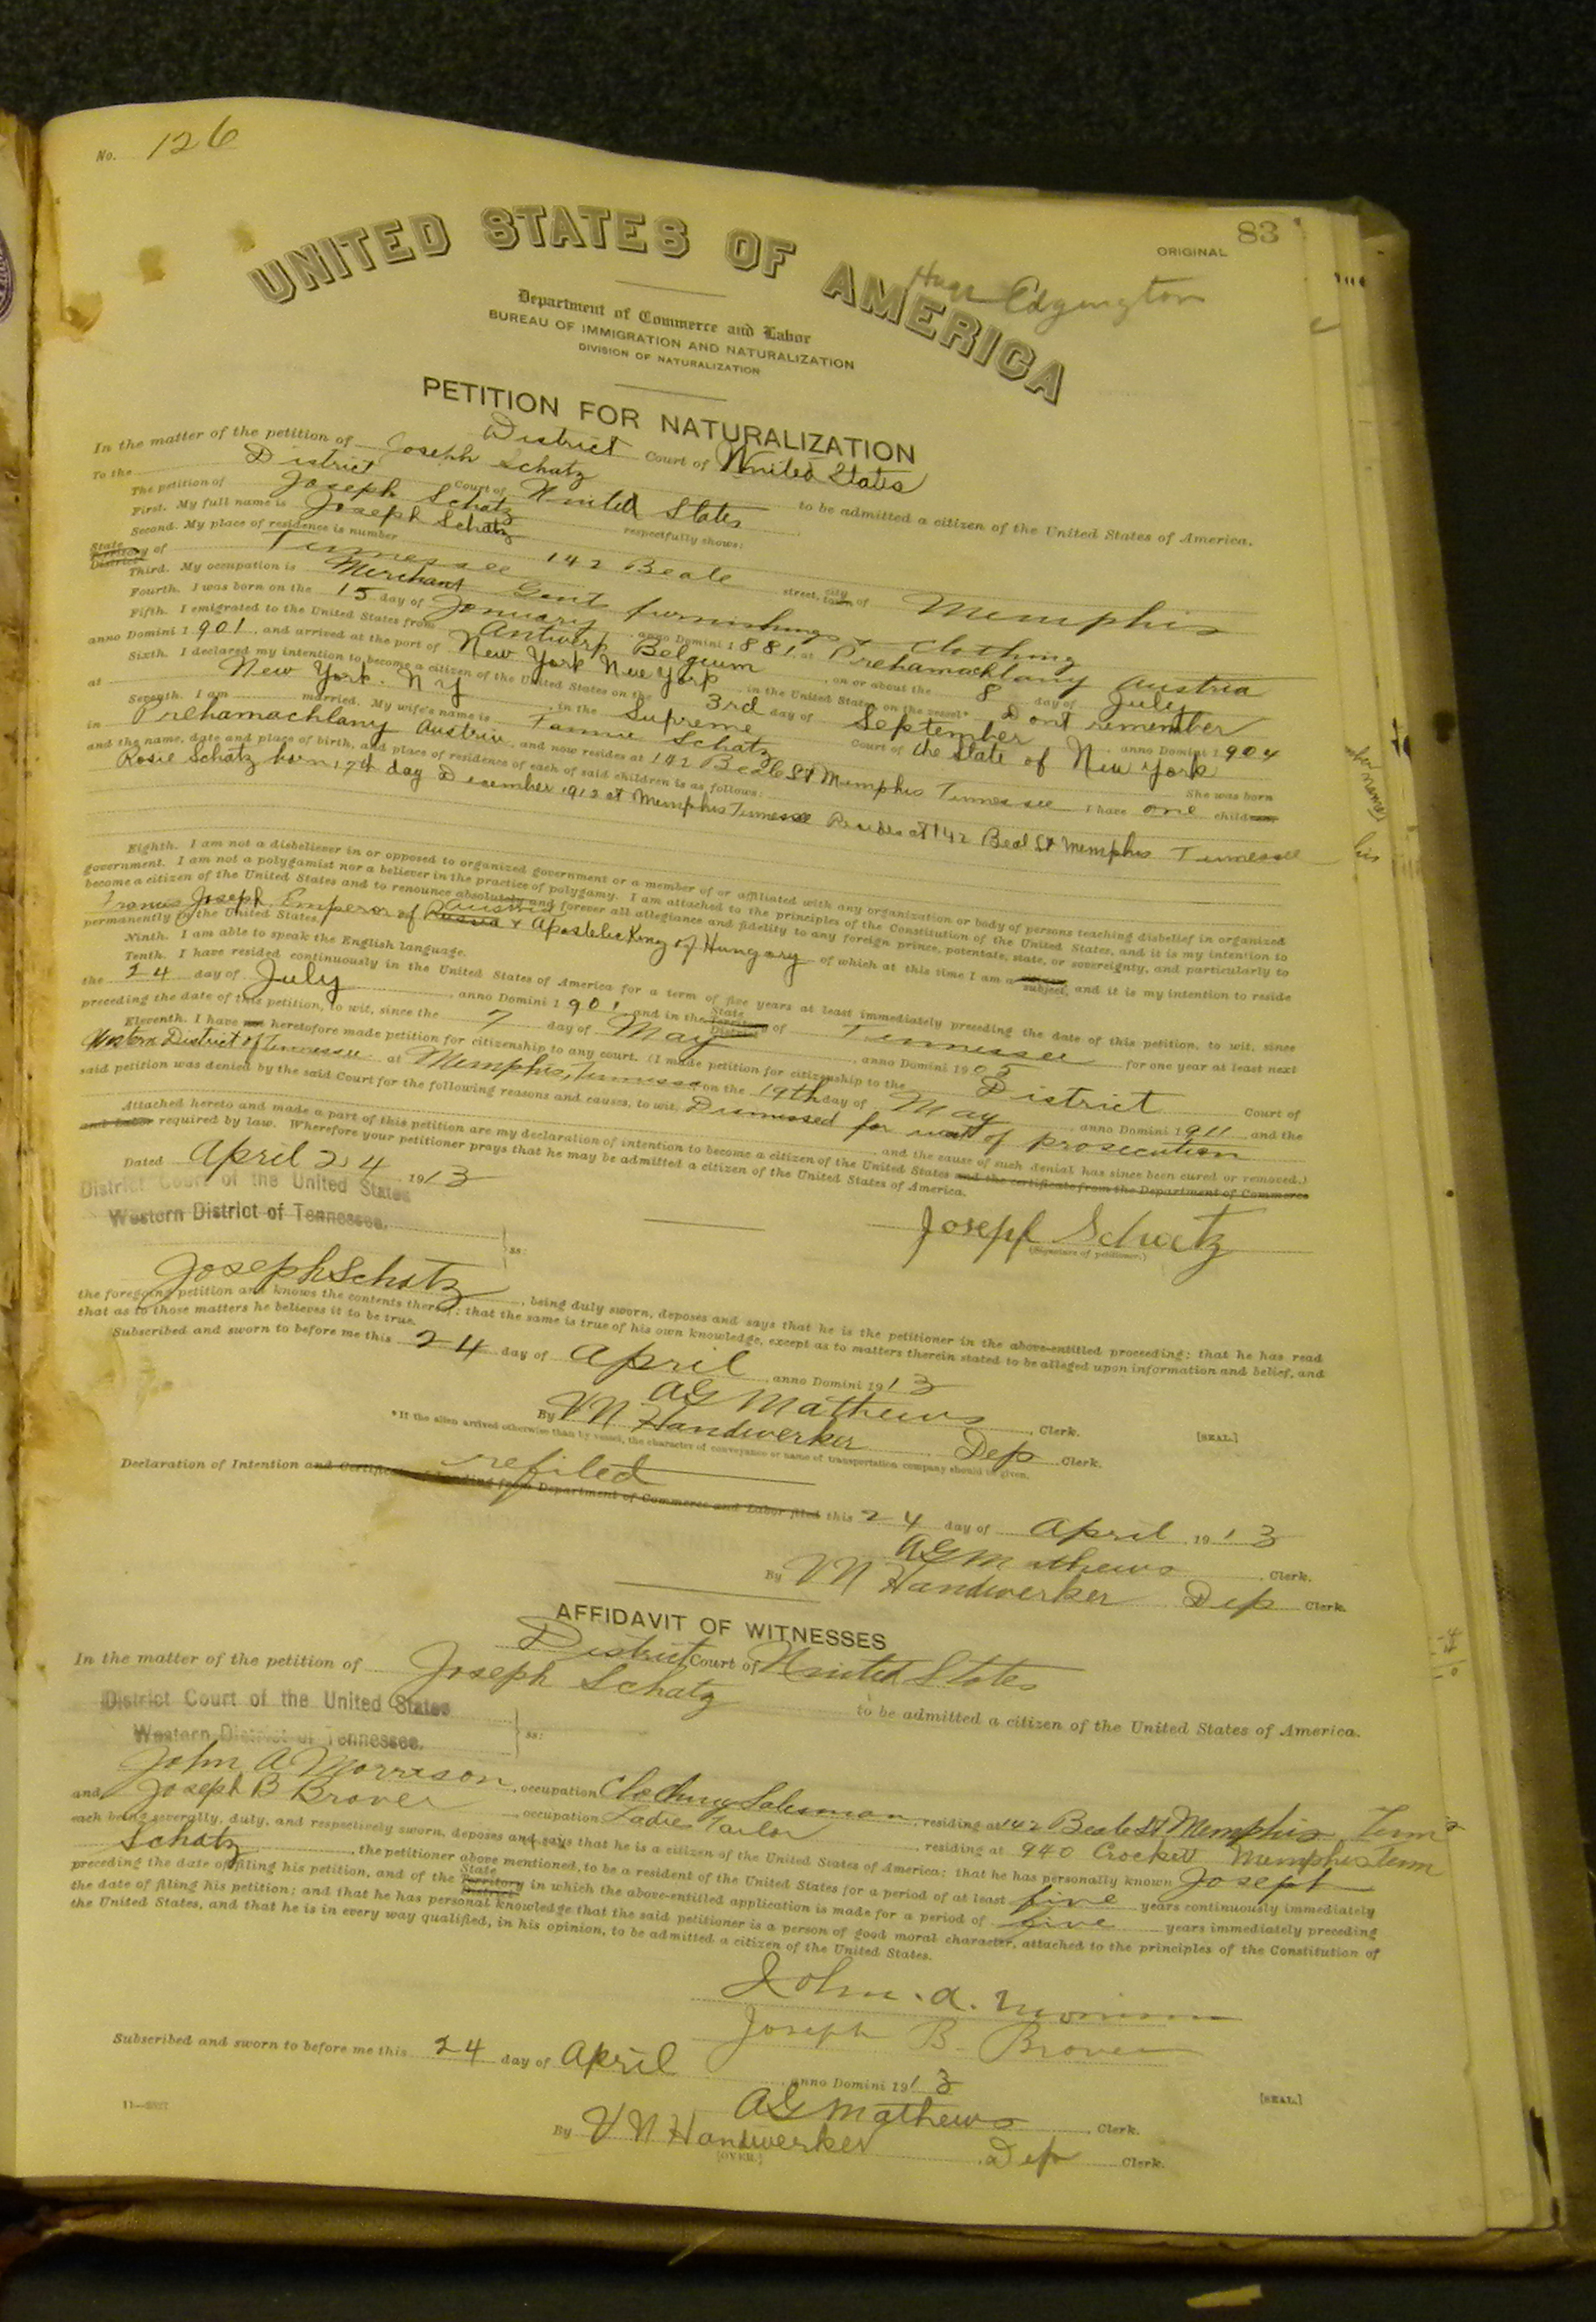 No. 126
83
ORIGINAL
UNITED STATES OF AMERICA
Edgington
Department of Commerce and Labor
BUREAU OF IMMIGRATION AND NATURALIZATION
DIVISION OF NATURALIZATION
PETITION FOR NATURALIZATION
District Court of United States
In the matter of the petition of Joseph Schatz to be admitted a citizen of the United States of America.
To the District Court of United States
The petition of Joseph Schatz respectfully shows:
First. My full name is Joseph Schatz
Second. My place of residence is number 142 Beale street, city town of Memphis
State Territory District of Tennessee
Third. My occupation is Merchant Gents furnishings & Clothing
Fourth. I was born on the 15 day of January, anno Domini 1881, at Prehamachlany Austria
Fifth. I emigrated to the United States from Antwerp Belgium, on or about the 8 day of July
anno Domini 1901, and arrived at the port of New York New York, in the United States on the vessel* Dont remember
Sixth. I declared my intention to become a citizen of the United States on the 3rd day of September, anno Domini 1904
at New York. N Y, in the Supreme Court of the State of New York
Seventh. I am married. My wife's name is Fannie Schatz She was born
in Prehamachlany Austria, and now resides at 142 Beale St Memphis Tennessee I have one children
and the name, date and place of birth, and place of residence of each of said children is as follows:
Rosie Schatz born 17th day December 1912 at Memphis Tennessee Resides at 142 Beal St Memphis Tennessee
Eighth. I am not a disbeliever in or opposed to organized government or a member of or affiliated with any organization or body of persons teaching disbelief in organized
government. I am not a polygamist nor a believer in the practice of polygamy. I am attached to the principles of the Constitution of the United States, and it is my intention to
become a citizen of the United States and to renounce absolutely and forever all allegiance and fidelity to any foreign prince, potentate, state, or sovereignty, and particularly to
Francis Joseph Emperor of Russia Austria & Apostolic King of Hungary of which at this time I am a subject, and it is my intention to reside
permanently in the United States.
Ninth. I am able to speak the English language.
Tenth. I have resided continuously in the United States of America for a term of five years at least immediately preceding the date of this petition, to wit, since
the 24 day of July, anno Domini 1901, and in the State Territory District of Tennessee for one year at least next
preceding the date of this petition, to wit, since the 7 day of May, anno Domini 1905
Eleventh. I have not heretofore made petition for citizenship to any court. (I made petition for citizenship to the District Court of
Western District of Tennessee at Memphis, Tennessee on the 19th day of May, anno Domini 1911 and the
said petition was denied by the said Court for the following reasons and causes, to wit, Dismissed for want of prosecution
and the cause of such denial has since been cured or removed.)
Attached hereto and made a part of this petition are my declaration of intention to become a citizen of the United States and the certificate from the Department of Commerce
and Labor required by law. Wherefore your petitioner prays that he may be admitted a citizen of the United States of America.
Dated April 24 1913
Joseph Schatz
(Signature of petitioner.)
District Court of the United States
Western District of Tennessee. ss:
Joseph Schatz, being duly sworn, deposes and says that he is the petitioner in the above-entitled proceeding; that he has read
the foregoing petition and knows the contents thereof; that the same is true of his own knowledge, except as to matters therein stated to be alleged upon information and belief, and
that as to those matters he believes it to be true.
Subscribed and sworn to before me this 24 day of April, anno Domini 1913
AG Mathews, Clerk.
[SEAL.]
By VN Handwerker Dep Clerk.
*If the alien arrived otherwise than by vessel, the character of conveyance or name of transportation company should be given.
refiled
Declaration of Intention and Certificate of Landing from Department of Commerce and Labor filed this 24 day of April, 1913
AG Mathews, Clerk.
By VN Handwerker Dep Clerk.
AFFIDAVIT OF WITNESSES
District Court of United States
In the matter of the petition of Joseph Schatz to be admitted a citizen of the United States of America.
District Court of the United States
Western District of Tennessee. ss:
John A Morrison, occupation Clothing Salesman, residing at 142 Beale St Memphis Tenn
and Joseph B Brover, occupation Ladies Tailor, residing at 940 Crockett Memphis Tenn
each being severally, duly, and respectively sworn, deposes and says that he is a citizen of the United States of America; that he has personally known Joseph
Schatz, the petitioner above mentioned, to be a resident of the United States for a period of at least five years continuously immediately
preceding the date of filing his petition, and of the State Territory District in which the above-entitled application is made for a period of five years immediately preceding
the date of filing his petition; and that he has personal knowledge that the said petitioner is a person of good moral character, attached to the principles of the Constitution of
the United States, and that he is in every way qualified, in his opinion, to be admitted a citizen of the United States.
John. A. Morrison
Joseph B. Brover
Subscribed and sworn to before me this 24 day of April, anno Domini 1913
[SEAL.]
AG Mathews, Clerk.
By VN Handwerker, Dep Clerk.
[OVER.]